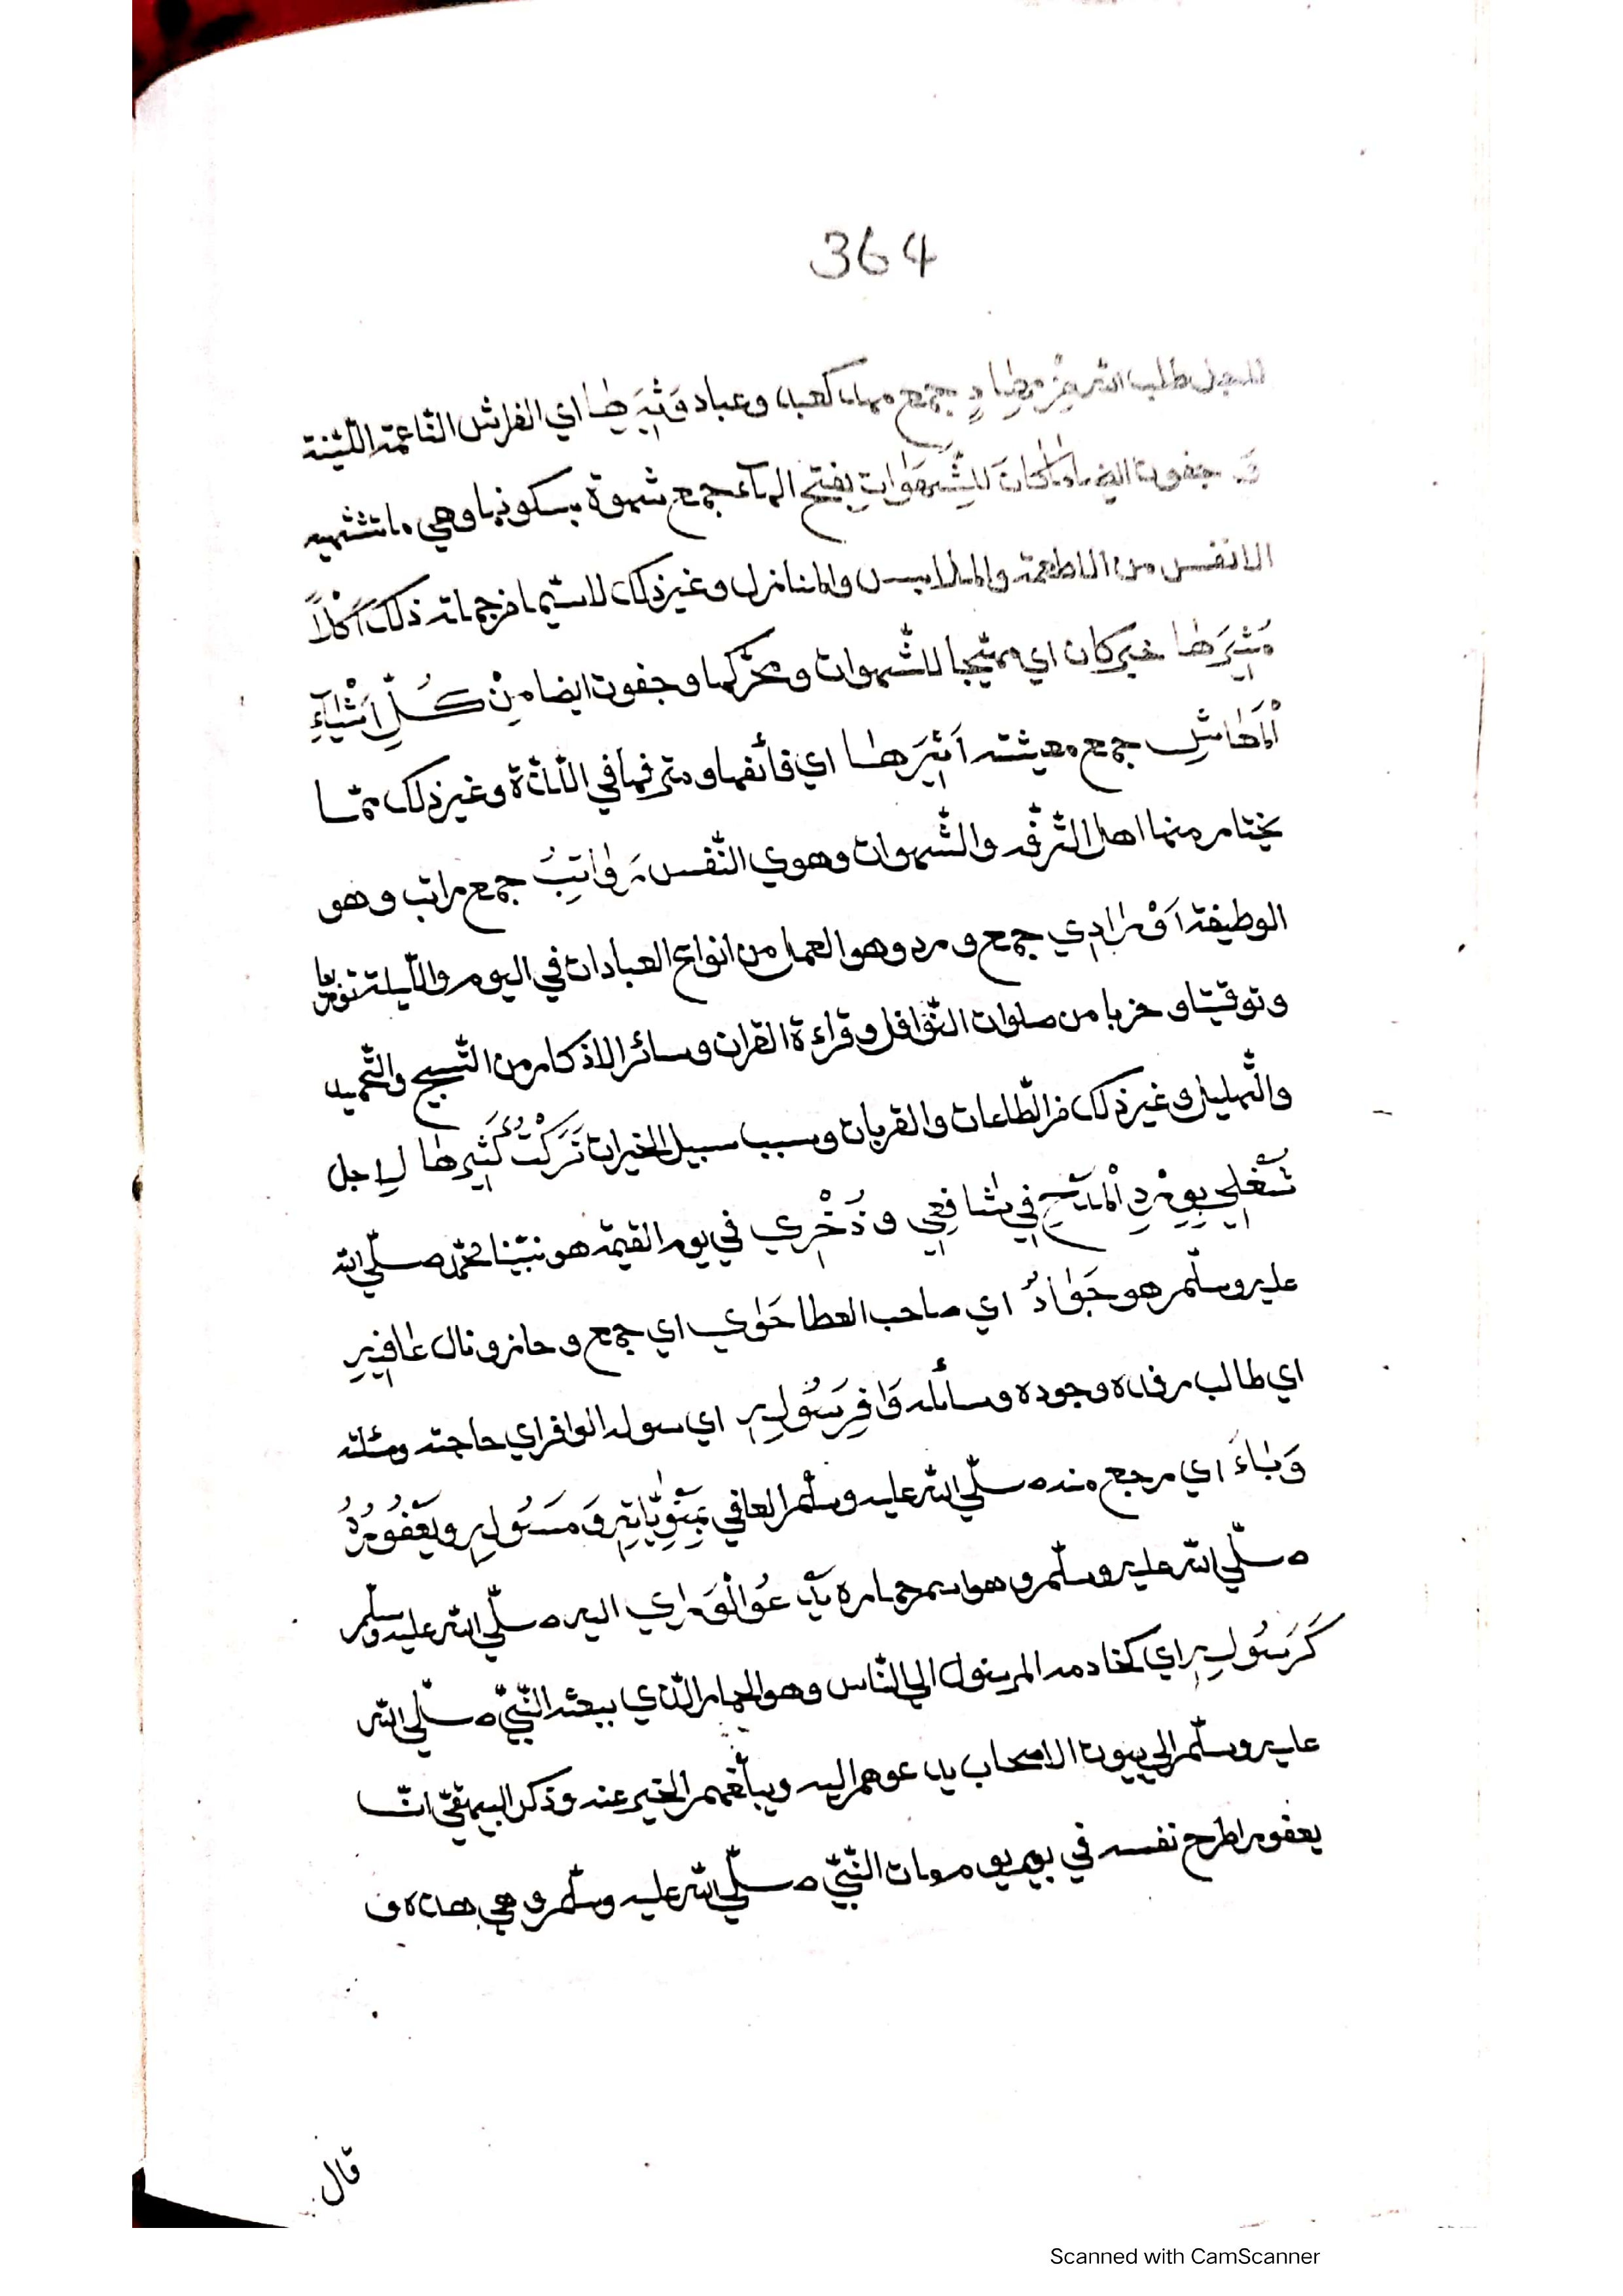 364
طلب جمع مهاد كعباد وعباد وَثِيرَهَا اي الفراش الناعمة اللّيّنة
جفوت لِلشَّهَوَاتِ بفتح الهآء جمع شهوة بسكونها وهي ما تشتهيه
الانفس من الاطعمة والملابس والمنازل وغير ذلك لا سيّما من جملة ذلك اَكْلًا
مُثِيرَهَا خبر كان اي مهيّجا للشّهوات ومحرّكها وجفوت ايضا مِنْ كُلِّ اَشْيَآءِ
الْمَعَاشِ جمع معيشة اَثِيرَهَا اي فائقها ومترفها في اللّذّة وغير ذلك ممّا
يختار منها اهل الترفّه والشّهوات وهوي النّفس رَوَاتِبُ جمع راتب وهو
الوظيفة اَوْرَادِي جمع ورد وهو العمل من انواع العبادات في اليوم واللّيلة
وتوقيتا وحزبا من صلوات النّوافل وقراءة القران وسائر الاذكار من التّسبيح والتّحميد
والتّهليل وغير ذلك من الطّاعات والقربات وسبب سبيل الخيرات تَرَكْتُ كَثِيرَهَا لاجل
شُغْلِي بِوِرْدِ الْمَدْحِ فِي شَافِعِي وذُخْرِي في يوم القيمة هو نبيّنا محمّد صلّي الله
عليه وسلّم هو جَوَادٌ اي صاحب العطا حَوٰي اي جمع وحاز ونال عَافِيهِ
اي طالب رفده وجوده وسائله وَافِرَ سُولِهِ اي سوله الوافر اي حاجته ومسئلته
وَبَاءَ اي رجع منه صلّي الله عليه وسلّم العافي بِمَثْوِيَّاتِهِ وَمَسُولِهِ ويَعْفُورُهُ
صلّي الله عليه وسلّم وهو اسم حماره يَدْعُو الْوَرٰي اليه صلّي الله عليه وسلّم
كَرَسُولِهِ اي كخادمه المرسول الي النّاس وهو الحمار الّذي يبعثه النّبيّ صلّي الله
عليه وسلّم الي بيوت الاصحاب يدعوهم اليه ويبلّغهم الخبر عنه وذكر البيهقيّ انّ
يعفور اطرح نفسه في يوم مات النّبيّ صلّي الله عليه وسلّم وهي هذه
قال
Scanned with CamScanner